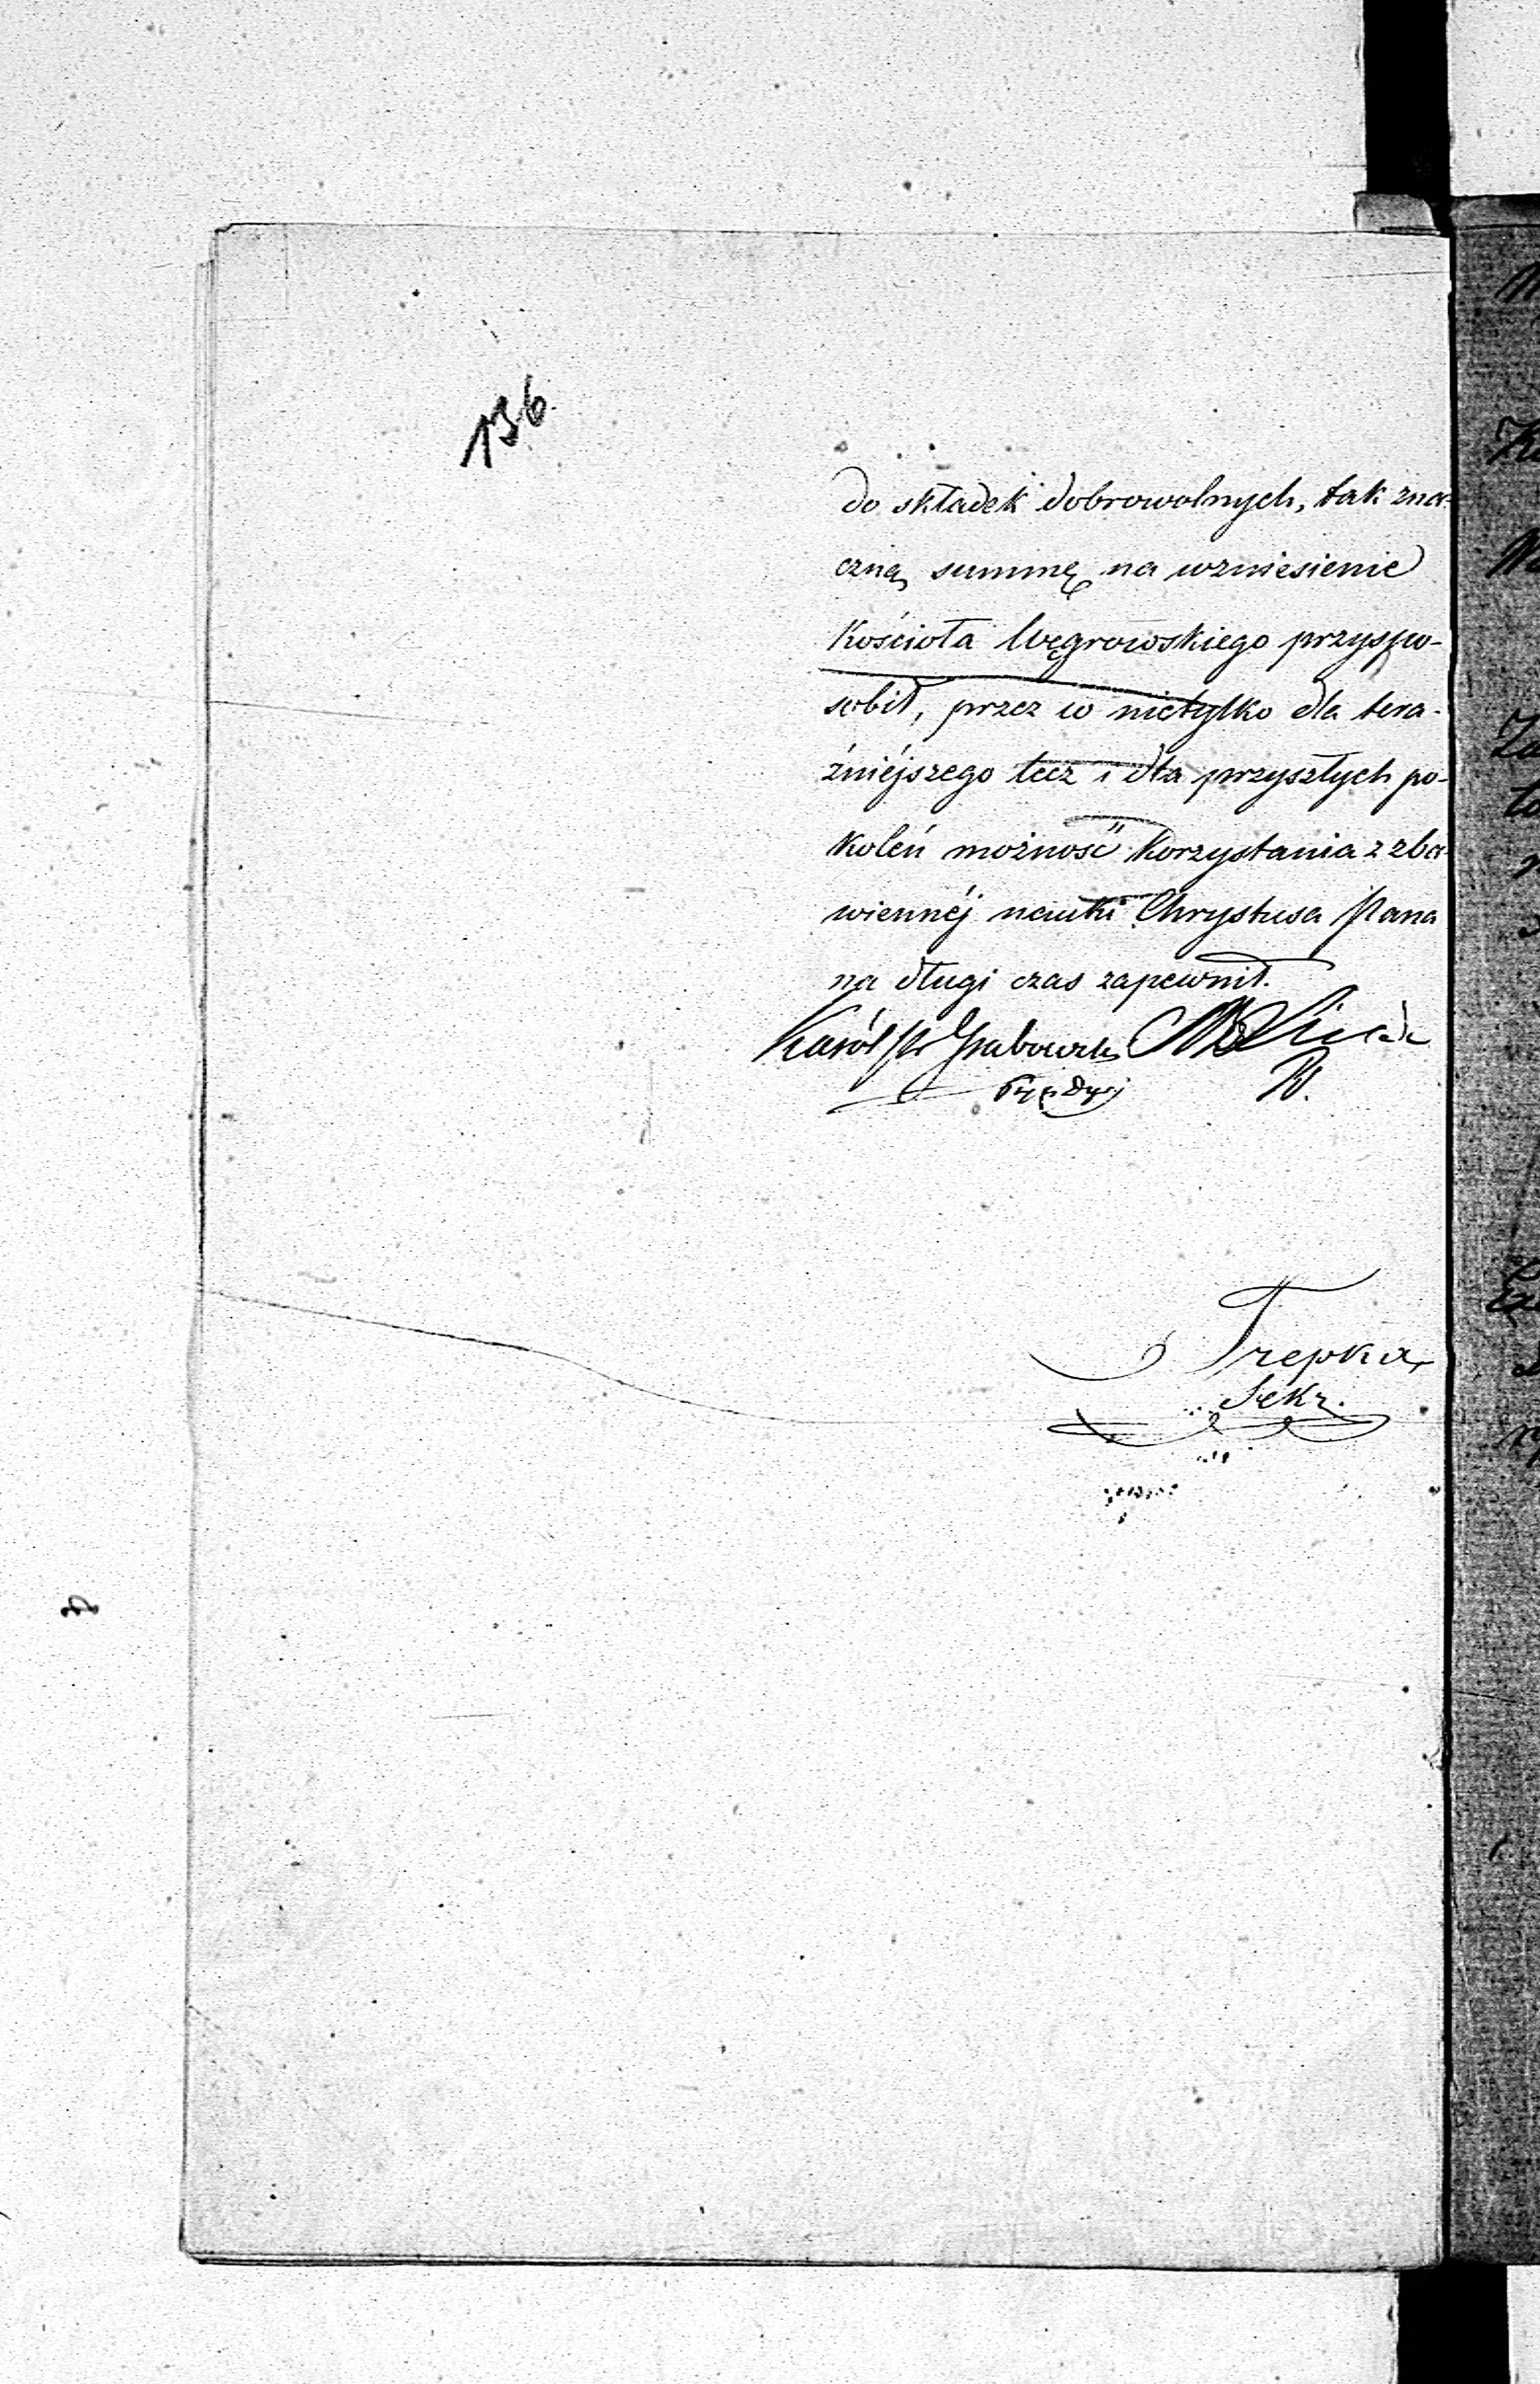 136
do składek dobrowolnych, tak zna-
czną summę na wzniesienie
Kościoła Węgrowskiego przyspo-
sobił, przez co nietylko dla tera-
źniejszego lecz i dla przyszłych po-
koleń możność korzystania z zba-
wiennéj nauki Chrystusa Pana
na długi czas zapewnił.
Karól Grabowski
Trepka
Sekr.